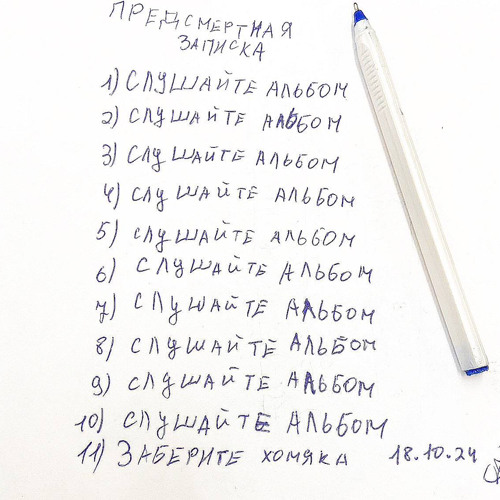 ПРЕДСМЕРТНАЯ
ЗАПИСКА
1) СЛУШАЙТЕ АЛЬБОМ
2) СЛУШАЙТЕ АЛЬБОМ
3) СЛУШАЙТЕ АЛЬБОМ
4) СЛУШАЙТЕ АЛЬБОМ
5) СЛУШАЙТЕ АЛЬБОМ
6) СЛУШАЙТЕ АЛЬБОМ
7) СЛУШАЙТЕ АЛЬБОМ
8) СЛУШАЙТЕ АЛЬБОМ
9) СЛУШАЙТЕ АЛЬБОМ
10) СЛУШАЙТЕ АЛЬБОМ
11) ЗАБЕРИТЕ ХОМЯКА 18.10.24